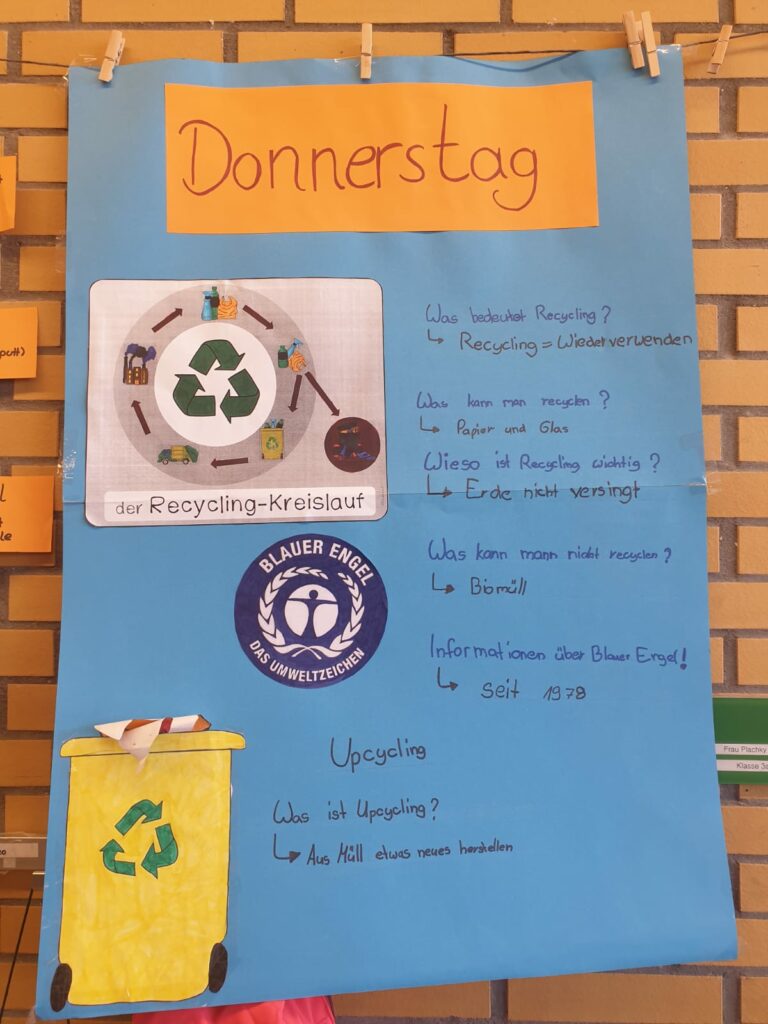 Donnerstag
der Recycling-Kreislauf
Was bedeutet Recycling?
Recycling = Wiederverwenden
Was kann man recyclen?
Papier und Glas
Wieso ist Recycling wichtig?
Erde nicht versingt
Was kann mann nicht recyclen?
Biomüll
BLAUER ENGEL
DAS UMWELTZEICHEN
Informationen über Blauer Engel!
seit 1978
Upcycling
Was ist Upcycling?
Aus Müll etwas neues herstellen
Frau Plachky
Klasse 3a